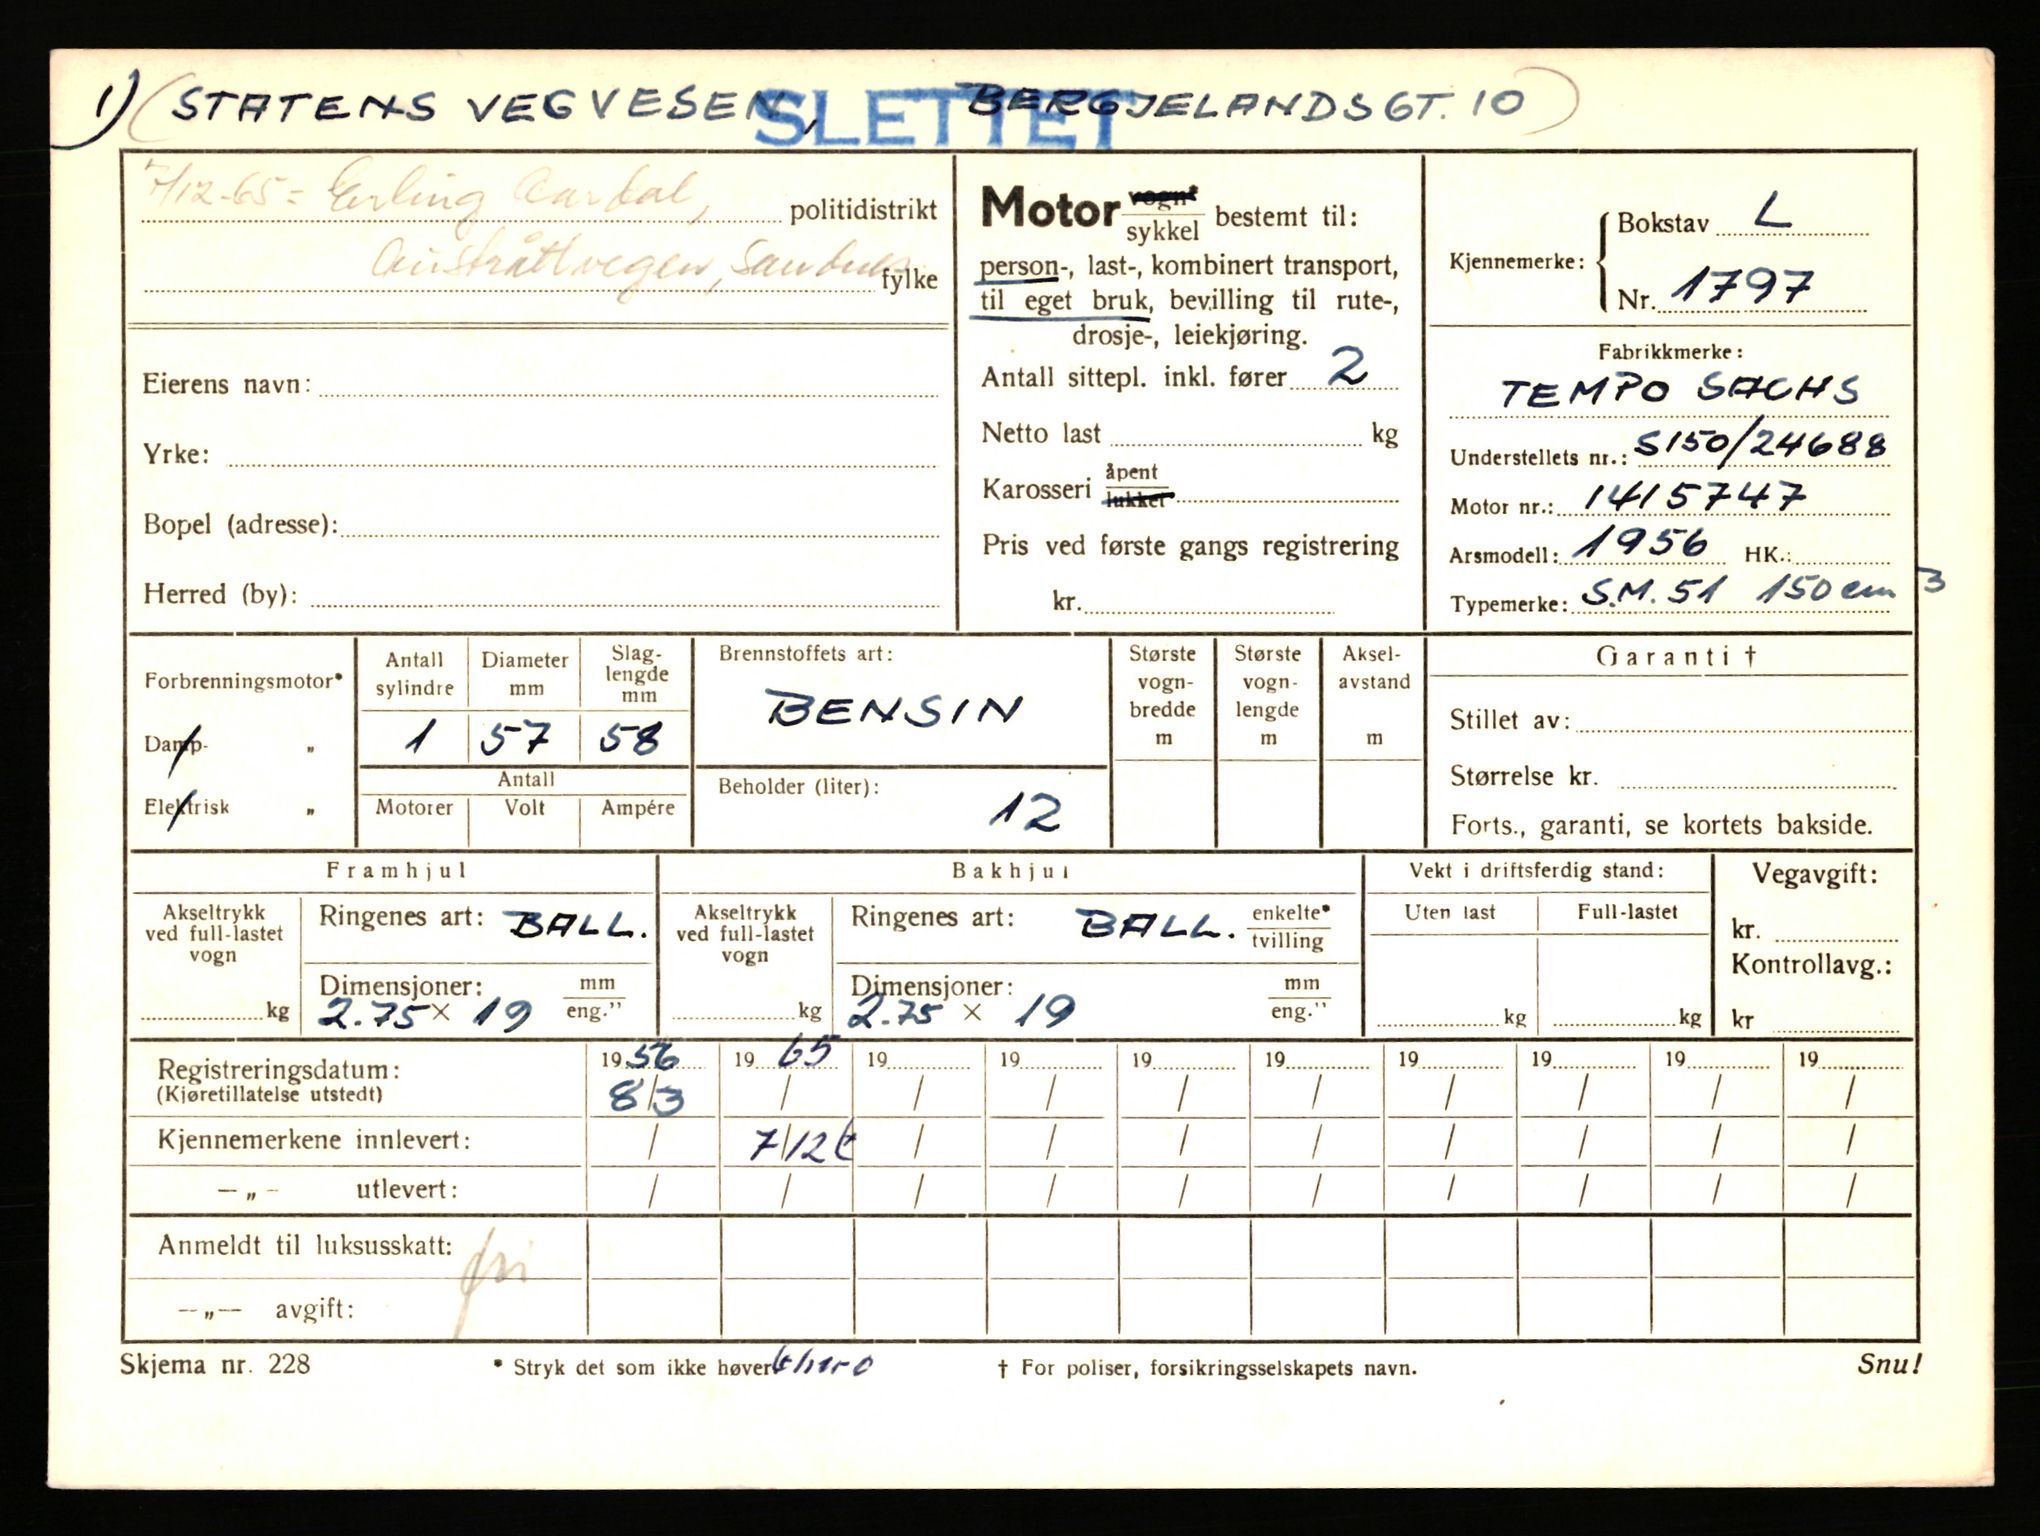 1) (STATENS VEGVESEN, BERGJELANDSGT. 10)
SLETTET
7/12-65 = Erling Aardal, politidistrikt
Austråttvegen, Sandnes fylke
Eierens navn:
Yrke:
Bopel (adresse):
Herred (by):
Motor vogn* sykkel bestemt til:
person-, last-, kombinert transport,
til eget bruk, bevilling til rute-,
drosje-, leiekjøring.
Antall sittepl. inkl. fører 2
Netto last kg
Karosseri åpent lukket
Pris ved første gangs registrering
kr.
Kjennemerke: Bokstav L
Nr. 1797
Fabrikkmerke:
TEMPO SACHS
Understellets nr.: S150/24688
Motor nr.: 1415747
Arsmodell: 1956 HK.:
Typemerke: S.M. 51 150 cm 3
Forbrenningsmotor*
Damp- „
Elektrisk „
Antall sylindre
Diameter mm
Slag-lengde mm
1 57 58
Antall
Motorer Volt Ampére
Brennstoffets art:
BENSIN
Beholder (liter):
12
Største vogn-bredde m
Største vogn-lengde m
Aksel-avstand m
Garanti †
Stillet av:
Størrelse kr.
Forts., garanti, se kortets bakside.
Framhjul
Akseltrykk ved full-lastet vogn
kg
Ringenes art: BALL.
Dimensjoner: mm eng."
2.75 × 19
Bakhjul
Akseltrykk ved full-lastet vogn
kg
Ringenes art: BALL. enkelte* tvilling
Dimensjoner: mm eng."
2.75 × 19
Vekt i driftsferdig stand:
Uten last Full-lastet
kg kg
Vegavgift:
kr.
Kontrollavg.:
kr
Registreringsdatum: 1956 1965 19 19 19 19 19 19 19 19
(Kjøretillatelse utstedt) 8/3 / / / / / / / / /
Kjennemerkene innlevert: / 7/12 / / / / / / / /
—„— utlevert: / / / / / / / / / /
Anmeldt til luksusskatt: fri
—„— avgift:
Skjema nr. 228 * Stryk det som ikke høver † For poliser, forsikringsselskapets navn. Snu!